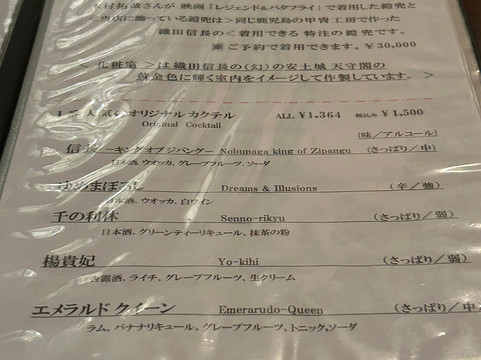 村拓哉さんが 映画「レジェンド&バタフライ」で着用した鎧兜と
当店に飾っている鎧兜は>同じ鹿児島の甲冑工房で作った
織田信長の<着用できる 特注の 鎧兜です。
※ご予約で着用できます。￥30,000
< 化粧室 >は織田信長の(幻)の安土城 天守閣の
黄金色に輝く室内をイメージして作製しています。>
1番人気の オリジナルカクテル ALL ￥1,364 税込み ￥1,500
Original Cocktail
(味/アルコール)
信長 ーキングオブジパングー Nobunaga king of Zipangu (さっぱり/中)
日本酒、ウオッカ、グレープフルーツ、ソーダ
ゆめまぼろし Dreams & Illusions (辛/強)
日本酒、ウオッカ、白ワイン
千の利休 Senno-rikyu (さっぱり/弱)
日本酒、グリーンティーリキュール、抹茶の粉
楊貴妃 Yo-kihi (さっぱり/弱)
白露酒、ライチ、グレープフルーツ、生クリーム
エメラルド クイーン Emerarudo-Queen (さっぱり/中
ラム、バナナリキュール、グレープフルーツ、トニック、ソーダ